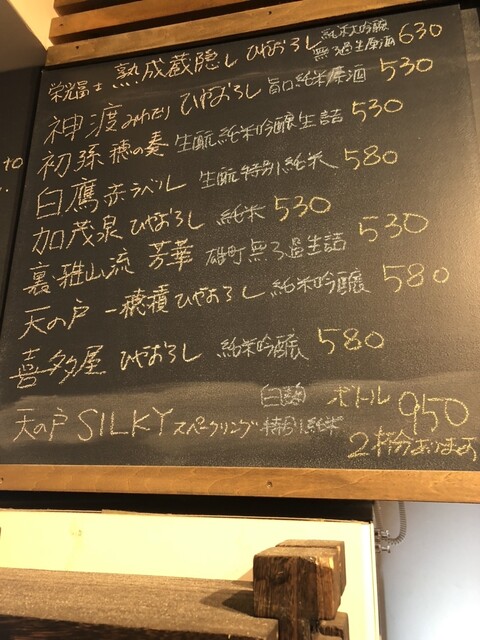 栄光冨士 熟成蔵隠し ひやおろし 純米大吟醸 無ろ過生原酒 630
神渡 みわたり ひやおろし 旨口純米原酒 530
初孫 穂の奏 生酛純米吟醸生詰 530
白鷹 赤ラベル 生酛特別純米 580
加茂泉 ひやおろし 純米 530
裏・雅山流 芳華 雄町無ろ過生詰 530
天の戸 一穂積 ひやおろし 純米吟醸 580
喜多屋 ひやおろし 純米吟醸 580
天の戸 SILKY スパークリング 白麹 特別純米 ボトル 950
2杯分あります
to